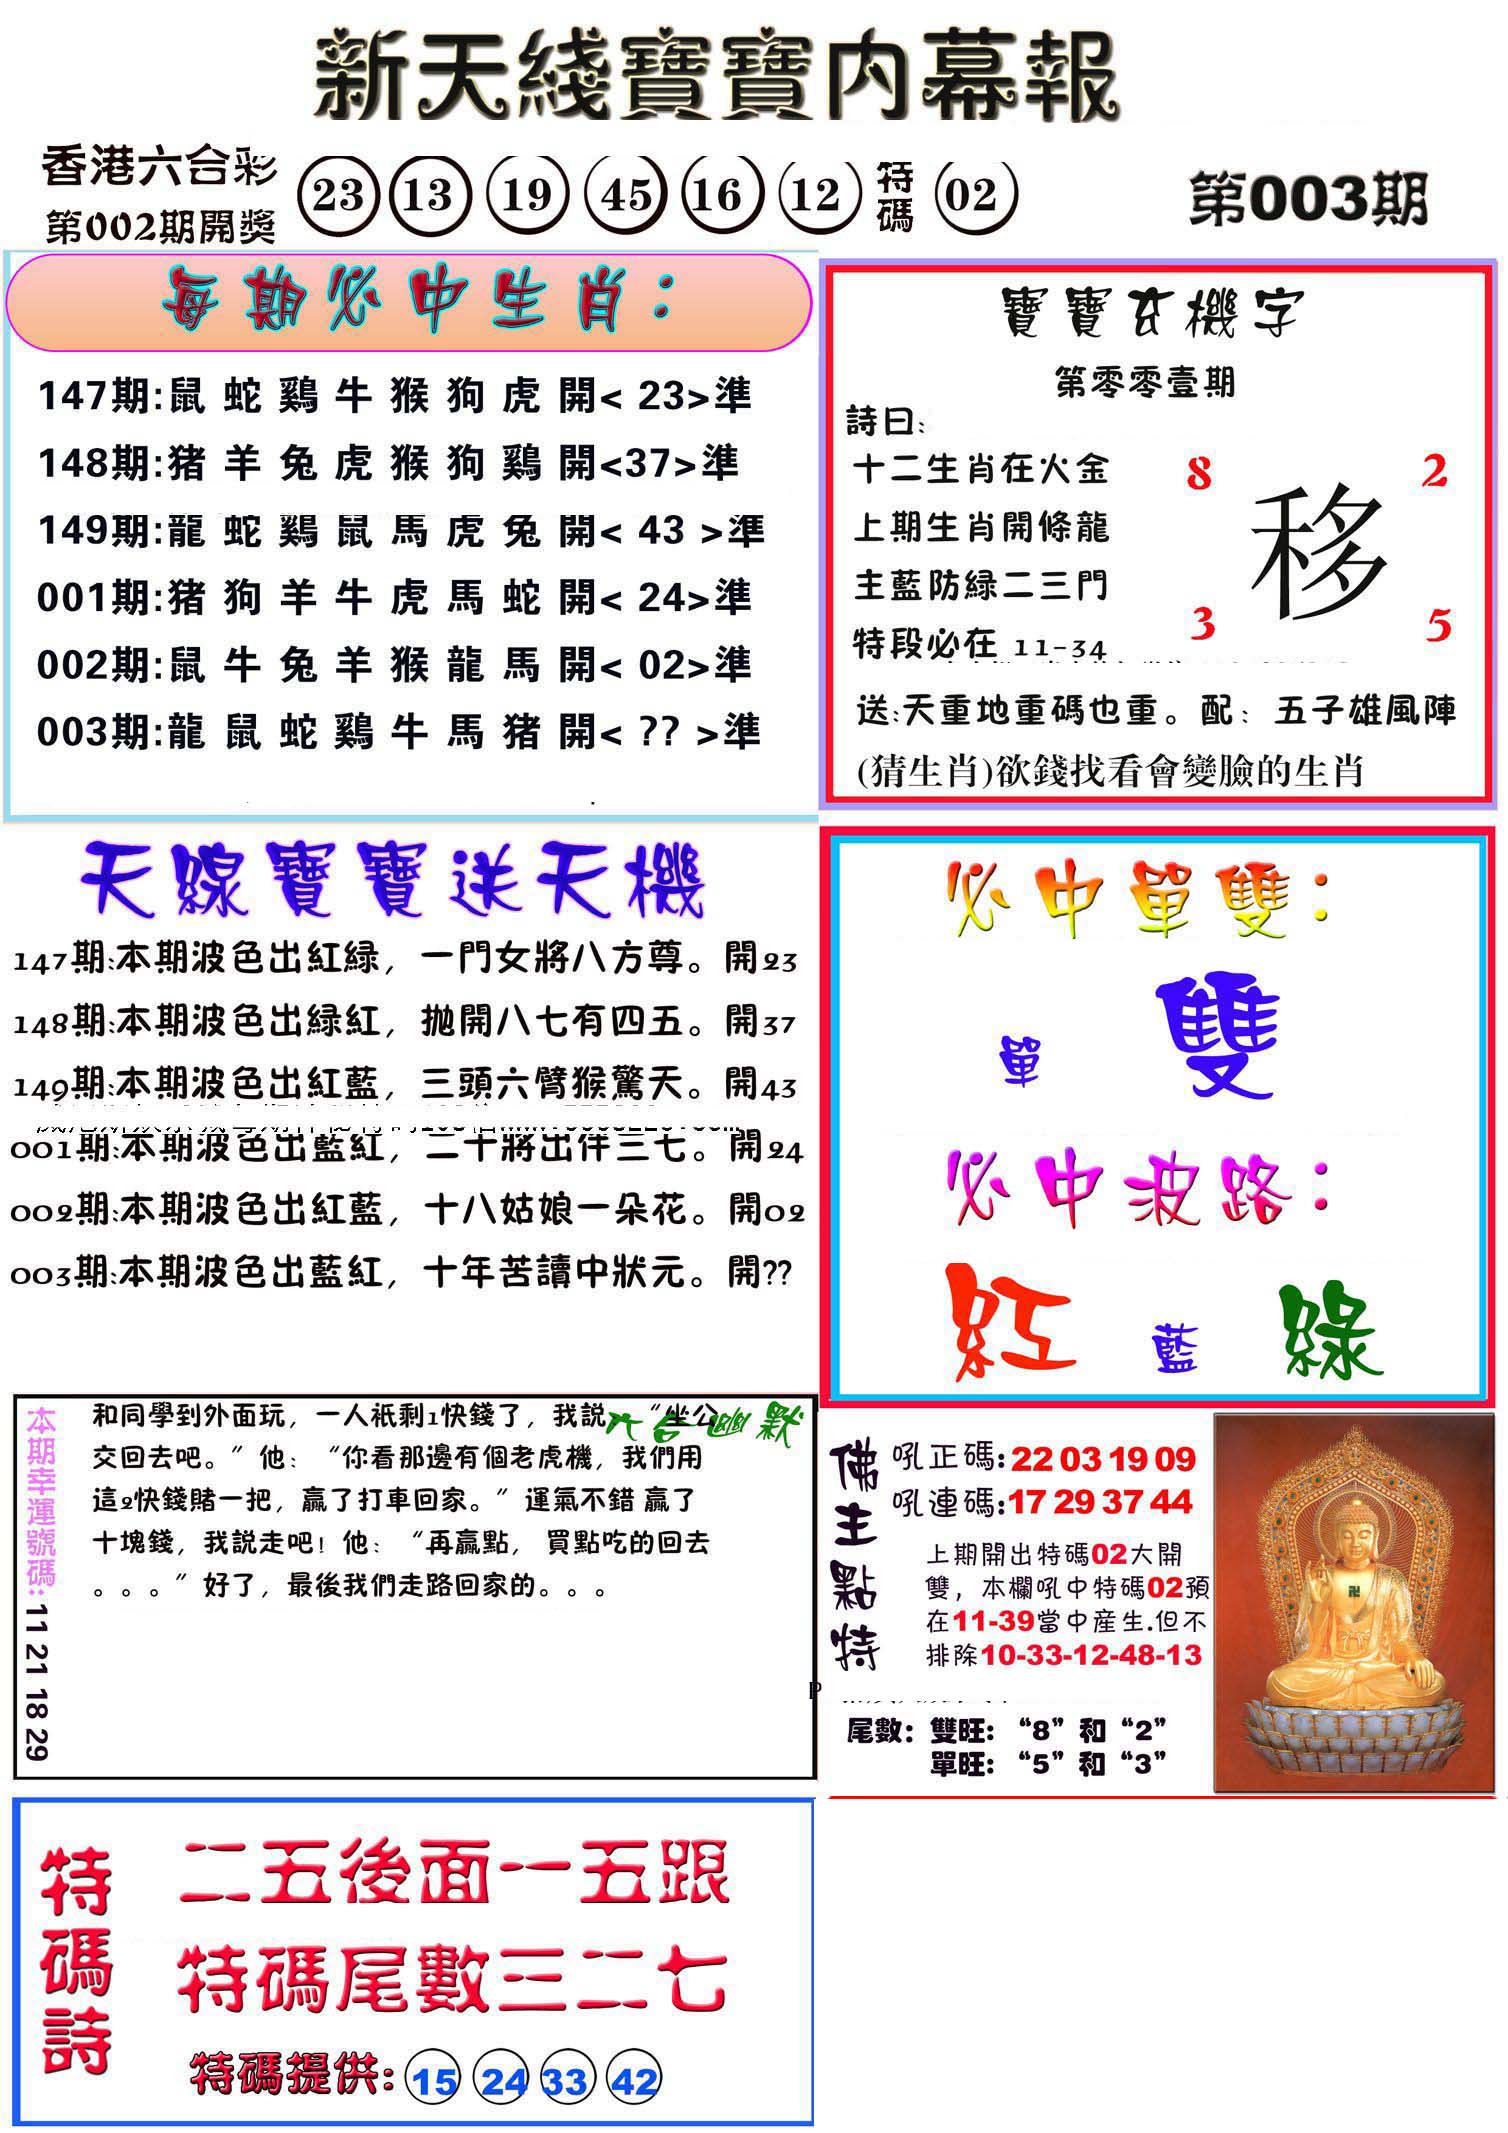 新天綫寶寶内幕報
香港六合彩
第002期開獎
23 13 19 45 16 12 特碼 02
第003期
每期必中生肖：
147期:鼠 蛇 鷄 牛 猴 狗 虎 開< 23>準
148期:猪 羊 兔 虎 猴 狗 鷄 開<37>準
149期:龍 蛇 鷄 鼠 馬 虎 兔 開< 43 >準
001期:猪 狗 羊 牛 虎 馬 蛇 開< 24>準
002期:鼠 牛 兔 羊 猴 龍 馬 開< 02>準
003期:龍 鼠 蛇 鷄 牛 馬 猪 開< ?? >準
寶寶玄機字
第零零壹期
詩曰:
十二生肖在火金
上期生肖開條龍
主藍防緑二三門
特段必在 11-34
8 2
移
3 5
送:天重地重碼也重。配：五子雄風陣
(猜生肖)欲錢找看會變臉的生肖
天線寶寶送天機
147期:本期波色出紅緑，一門女將八方尊。開23
148期:本期波色出緑紅，拋開八七有四五。開37
149期:本期波色出紅藍，三頭六臂猴驚天。開43
001期:本期波色出藍紅，二十將出伴三七。開24
002期:本期波色出紅藍，十八姑娘一朵花。開02
003期:本期波色出藍紅，十年苦讀中狀元。開??
必中單雙：
單 雙
必中波路：
紅 藍 綠
本期幸運號碼：11 21 18 29
六合幽默
和同學到外面玩，一人祇剩1快錢了，我説：“坐公
交回去吧。”他：“你看那邊有個老虎機，我們用
這2快錢賭一把，贏了打車回家。”運氣不錯 贏了
十塊錢，我説走吧！他：“再贏點， 買點吃的回去
。。。”好了，最後我們走路回家的。。。
佛主點特
吼正碼:22 03 19 09
吼連碼:17 29 37 44
上期開出特碼02大開
雙，本欄吼中特碼02預
在11-39當中産生.但不
排除10-33-12-48-13
P
尾數：雙旺：“8”和“2”
單旺：“5”和“3”
特碼詩
二五後面一五跟
特碼尾數三二七
特碼提供: 15 24 33 42